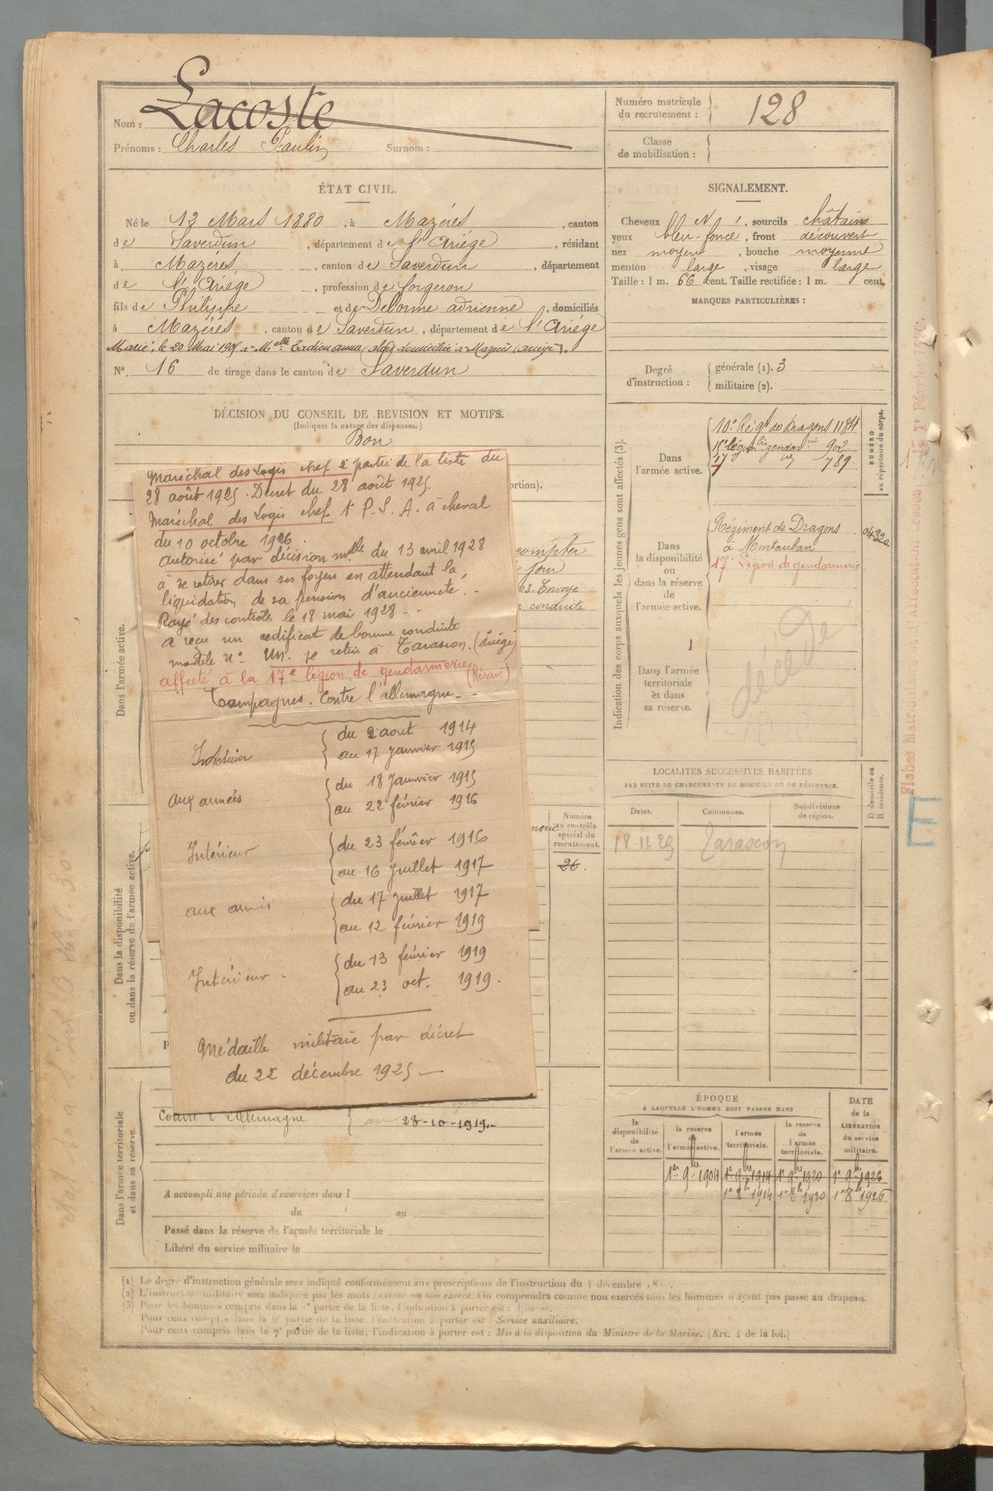 Nom : Lacoste
Prénoms : Charles Paulin Surnom :
Numéro matricule du recrutement : 128
Classe de mobilisation :
ÉTAT CIVIL.
Né le 13 Mars 1880, à Mazéres, canton
de Saverdun, département de l'Ariège, résidant
à Mazéres, canton de Saverdun, département
de l'Ariège, profession de forgeron
fils de Philippe et de Delorme adrienne, domiciliés
à Mazéres, canton de Saverdun, département de l'Ariège
Marié, le 20 Mai à Melle domicilié à Mazères (ariège).
N° 16 de tirage dans le canton de Saverdun
SIGNALEMENT.
Cheveux N, sourcils châtains
yeux bleu-foncé, front découvert
nez moyen, bouche moyenne
menton large, visage large
Taille : 1 m. 66 cent. Taille rectifiée : 1 m. cent.
MARQUES PARTICULIÈRES :
Degré d'instruction : générale (1). 3
militaire (2).
DÉCISION DU CONSEIL DE REVISION ET MOTIFS.
(Indiquer la nature des dispenses.)
Bon
Maréchal des Logis chef 2e partie de la liste du
28 août 1925. Décret du 28 août 1925.
Maréchal des Logis chef 1e P.S.A. à cheval
du 10 octobre 1926.
Autorisé par décision mlle du 13 avril 1928
à se retirer dans ses foyers en attendant la
liquidation de sa pension d'ancienneté.
Rayé des controls le 18 mai 1928.
a reçu un certificat de bonne conduite
modèle n° Un. se retire à Tarascon. (Ariège)
affecté à la 17e légion de gendarmerie (Réserve)
Campagnes. Contre l'allemagne
Intérieur { du 2 aout 1914
au 17 janvier 1915
aux armées { du 18 janvier 1915
au 22 février 1916
Intérieur { du 23 février 1916
au 16 juillet 1917
aux armées { du 17 juillet 1917
au 12 février 1919
Intérieur { du 13 février 1919
au 23 oct. 1919.
Médaille militaire par décret
du 22 décembre 1925
compter
jour
Envoyé
conduite
Numéro au contrôle spécial du recrutement.
26.
Contre l'Allemagne
23-10-1919.
A accompli une période d'exercices dans l
du au
Passé dans la réserve de l'armée territoriale le
Libéré du service militaire le
Dans l'armée active.
Dans la disponibilité ou dans la réserve de l'armée active.
Dans l'armée territoriale et dans sa réserve.
Indication des corps auxquels les jeunes gens sont affectés (3).
NUMÉRO au répertoire du corps.
Dans l'armée active.
10e Régt de Dragons 1184
902
17e 789
Dans la disponibilité ou dans la réserve de l'armée active.
Régiment de Dragons
à Montauban
17e Légion de gendarmerie
Dans l'armée territoriale et dans sa réserve.
décédé
LOCALITÉS SUCCESSIVES HABITÉES
PAR SUITE DE CHANGEMENTS DE DOMICILE OU DE RÉSIDENCE.
Dates. Communes. Subdivisions de région. D domicile ou R résidence.
Tarascon
ÉPOQUE
À LAQUELLE L'HOMME DOIT PASSER DANS
DATE de la LIBÉRATION du service militaire.
la disponibilité de l'armée active.
la réserve de l'armée active.
l'armée territoriale.
la réserve de l'armée territoriale.
1er 9bre 1904 1er 9bre 1914 1er 9bre 1920 1er 9bre 1926
1er 8bre 1914 1er 8bre 1920 1er 8bre 1926
(1) Le degré d'instruction générale sera indiqué conformément aux prescriptions de l'instruction du
(2) L'instruction militaire sera indiquée par les mots : exercé ou non exercé. On comprendra comme non exercés tous les hommes n'ayant pas passé au drapeau.
(3) Pour les hommes compris dans la partie de la liste, l'indication à porter est :
Pour ceux compris dans la partie de la liste, l'indication à porter est : Service auxiliaire.
Pour ceux compris dans la 7e partie de la liste, l'indication à porter est : Mis à la disposition du Ministre de la Marine. (Art. 4 de la loi.)